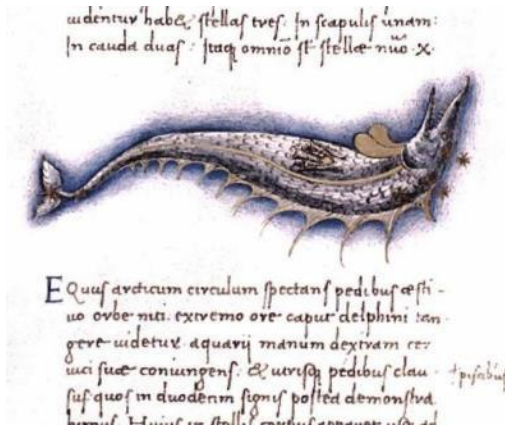 uidentur habe& stellas tres. In scapulis unam:
In cauda duas: Itaq; omnio st stellæ nũo .X.
EQuus arcticum circulum spectans pedibus æsti-
uo orbe niti. extremo ore caput delphini tan-
gere uidetur. aquarij manum dextram cer-
uici suæ coniungens. & utrisq; pedibus clau-
sus quos in duodecim signis postea demonstra
+piscibus
bimus. Huius in stellis